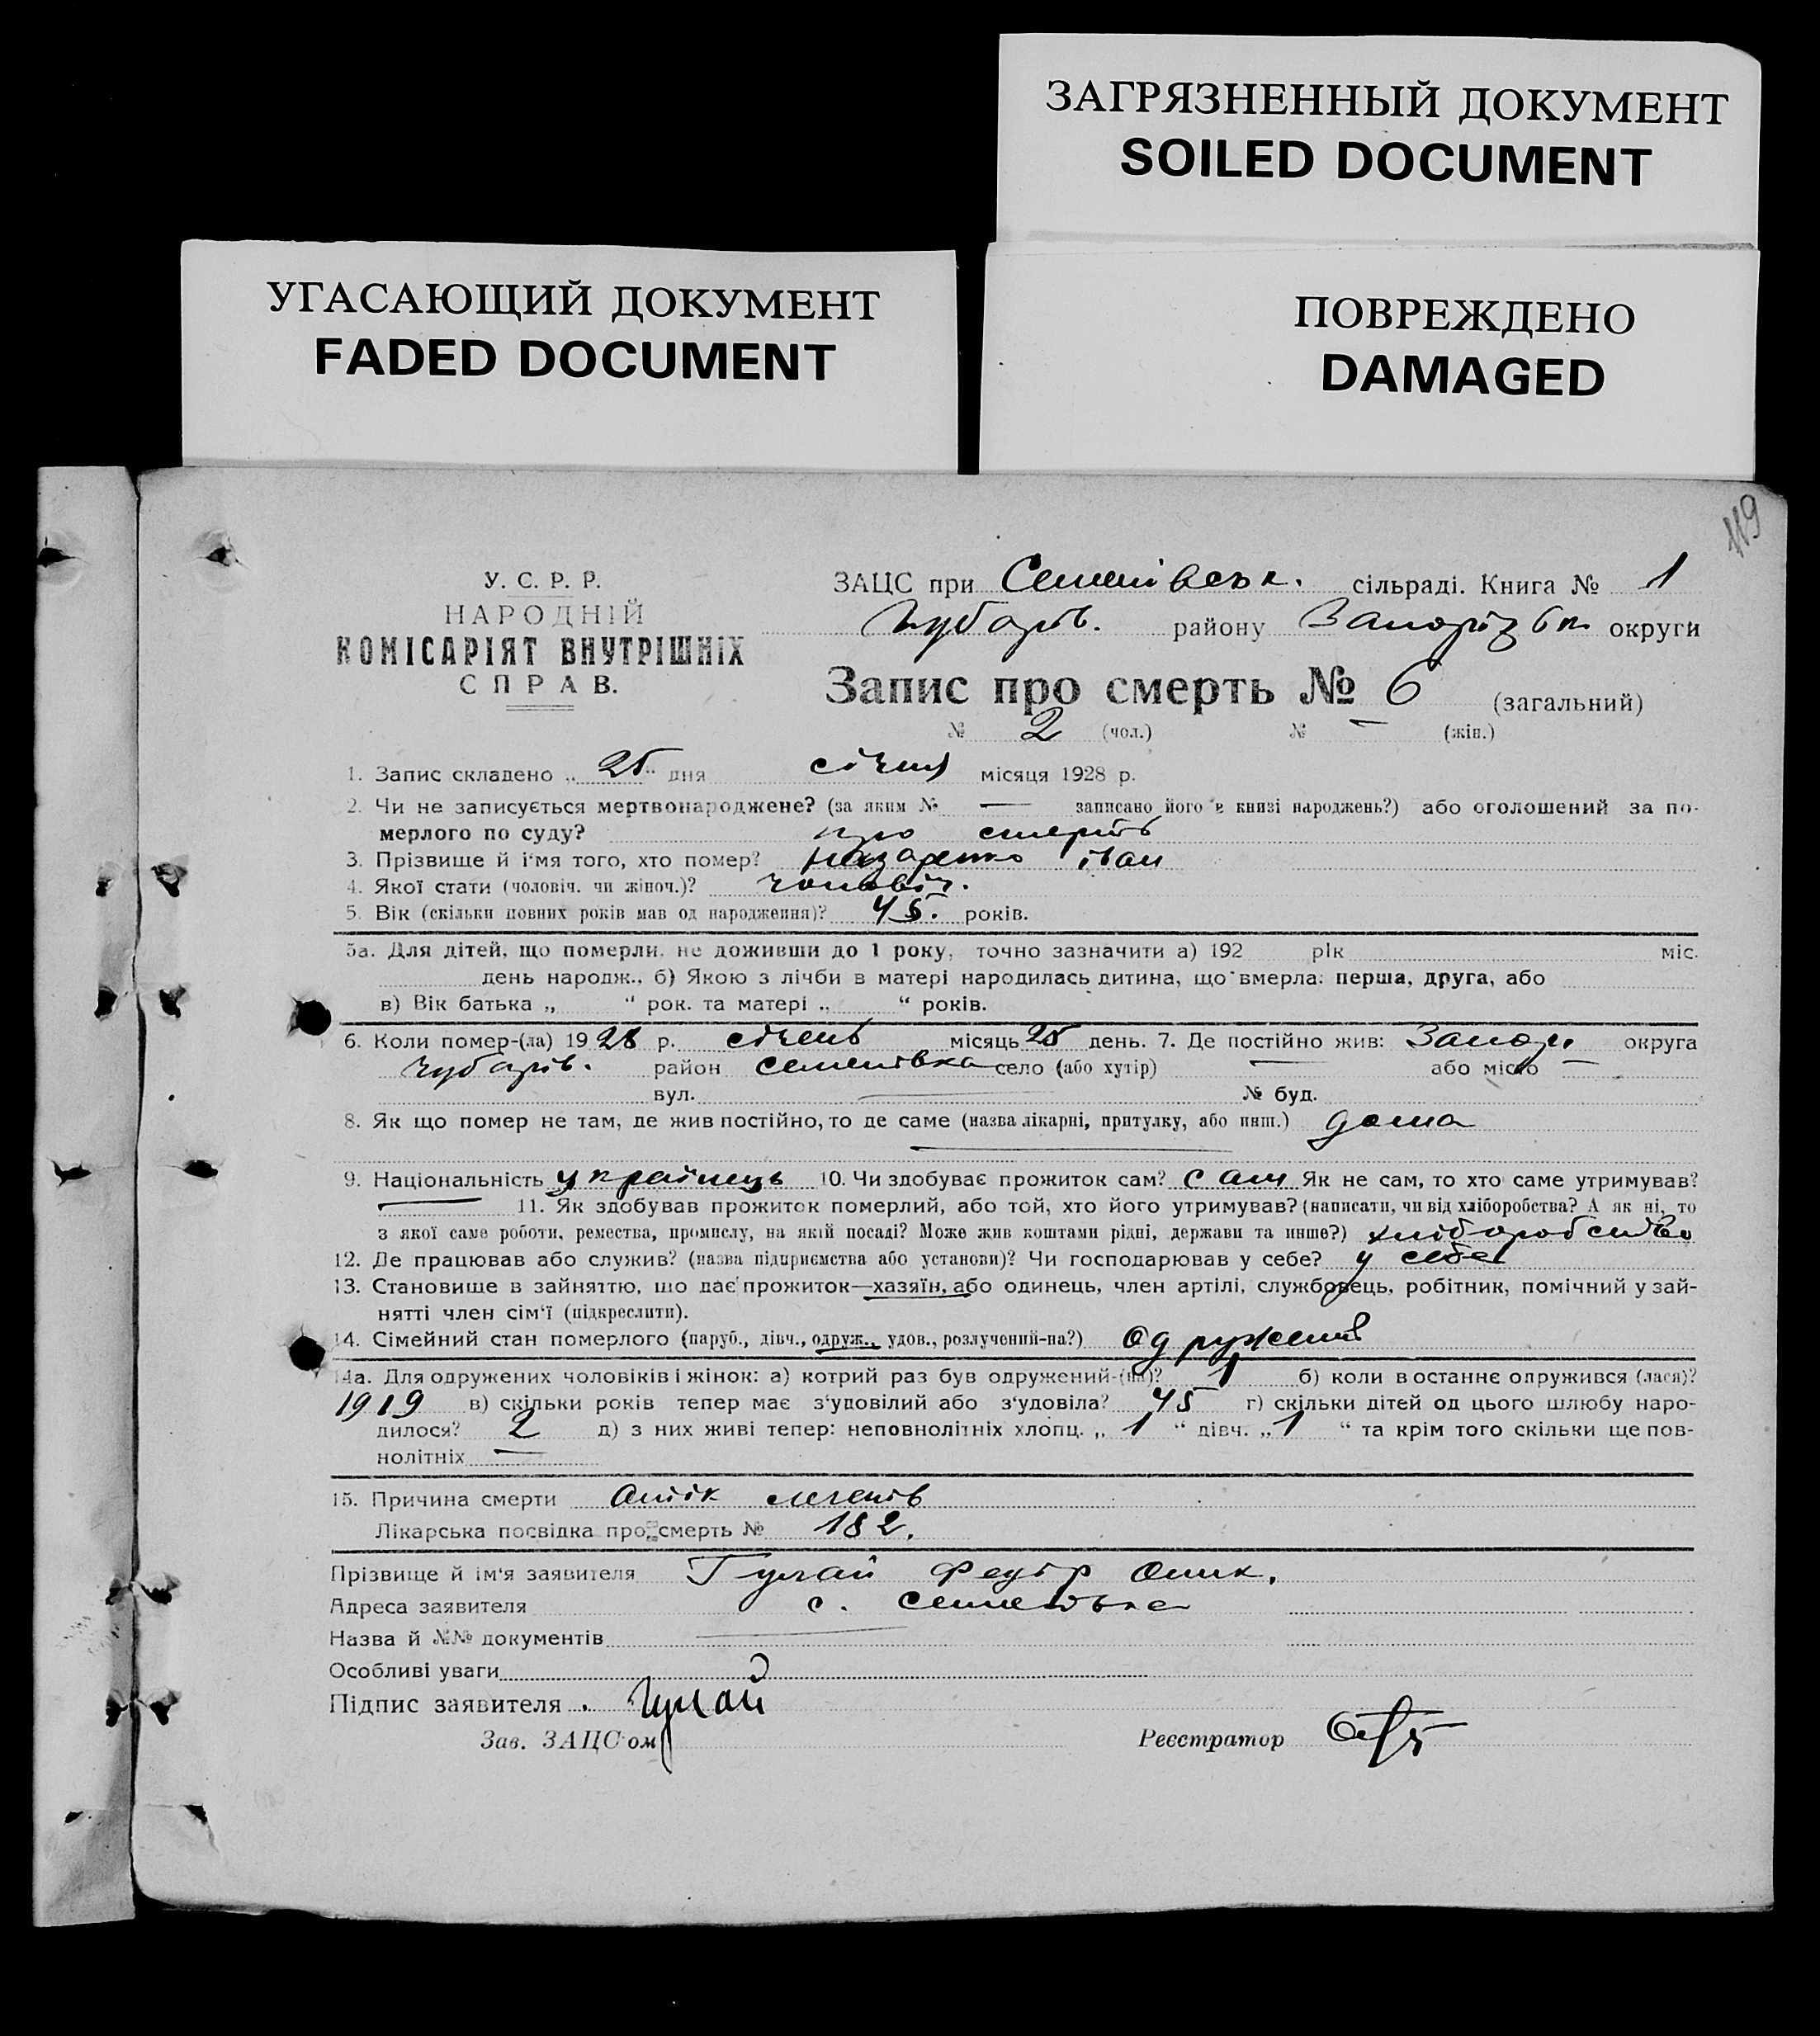 ЗАГРЯЗНЕННЫЙ ДОКУМЕНТ
SOILED DOCUMENT
УГАСАЮЩИЙ ДОКУМЕНТ
FADED DOCUMENT
ПОВРЕЖДЕНО
DAMAGED
119
У. С. Р. Р.
НАРОДНІЙ
КОМІСАРІЯТ ВНУТРІШНІХ
СПРАВ.
ЗАЦС при Семенівськ. сільраді. Книга № 1
Чубарів. району Запоріжськ округи
Запис про смерть № 6 (загальний)
№ 2 (чол.) № — (жін.)
1. Запис складено „ 25 “ дня січня місяця 1928 р.
2. Чи не записується мертвонароджене? (за яким № — записано його в книзі народжень?) або оголошений за по-
мерлого по суду? про смерть
3. Прізвище й ім'я того, хто помер? Назаренко іван
4. Якої стати (чоловіч. чи жіноч.)? чоловіч.
5. Вік (скільки повних років мав од народження)? 45. років.
5а. Для дітей, що померли, не доживши до 1 року, точно зазначити а) 192 рік міс.
день народж., б) Якою з лічби в матері народилась дитина, що вмерла: перша, друга, або
в) Вік батька „ “ рок. та матері „ “ років.
6. Коли помер-(ла) 1928 р. січень місяць 25 день. 7. Де постійно жив: Запор. округа
Чубарів. район Семенівка село (або хутір) — або місто —
вул. — № буд.
8. Як що помер не там, де жив постійно, то де саме (назва лікарні, притулку, або инш.) дома
9. Національність українець 10. Чи здобуває прожиток сам? сам Як не сам, то хто саме утримував?
— 11. Як здобував прожиток померлий, або той, хто його утримував? (написати, чи від хліборобства? А як ні, то
з якої саме роботи, ремества, промислу, на якій посаді? Може жив коштами рідні, держави та инше?) хліборобство
12. Де працював або служив? (назва підприємства або установи)? Чи господарював у себе? у себе
13. Становище в зайняттю, що дає прожиток—хазяїн, або одинець, член артілі, службовець, робітник, помічний у зай-
нятті член сім'ї (підкреслити).
14. Сімейний стан померлого (паруб., дівч., одруж., удов., розлучений-на?) одружений
14а. Для одружених чоловіків і жінок: а) котрий раз був одружений-(на)? 1 б) коли востаннє одружився (лася)?
1919 в) скільки років тепер має з'удовілий або з'удовіла? 45 г) скільки дітей од цього шлюбу наро-
дилося? 2 д) з них живі тепер: неповнолітніх хлопц. „ 1 “ дівч. „ 1 “ та крім того скільки ще пов-
нолітніх —
15. Причина смерти Отік легенів
Лікарська посвідка про смерть № 182.
Прізвище й ім'я заявителя Гулай Федір
Адреса заявителя с. Семенівка
Назва й №№ документів —
Особливі уваги
Підпис заявителя Гулай
Зав. ЗАЦС'ом Реєстратор